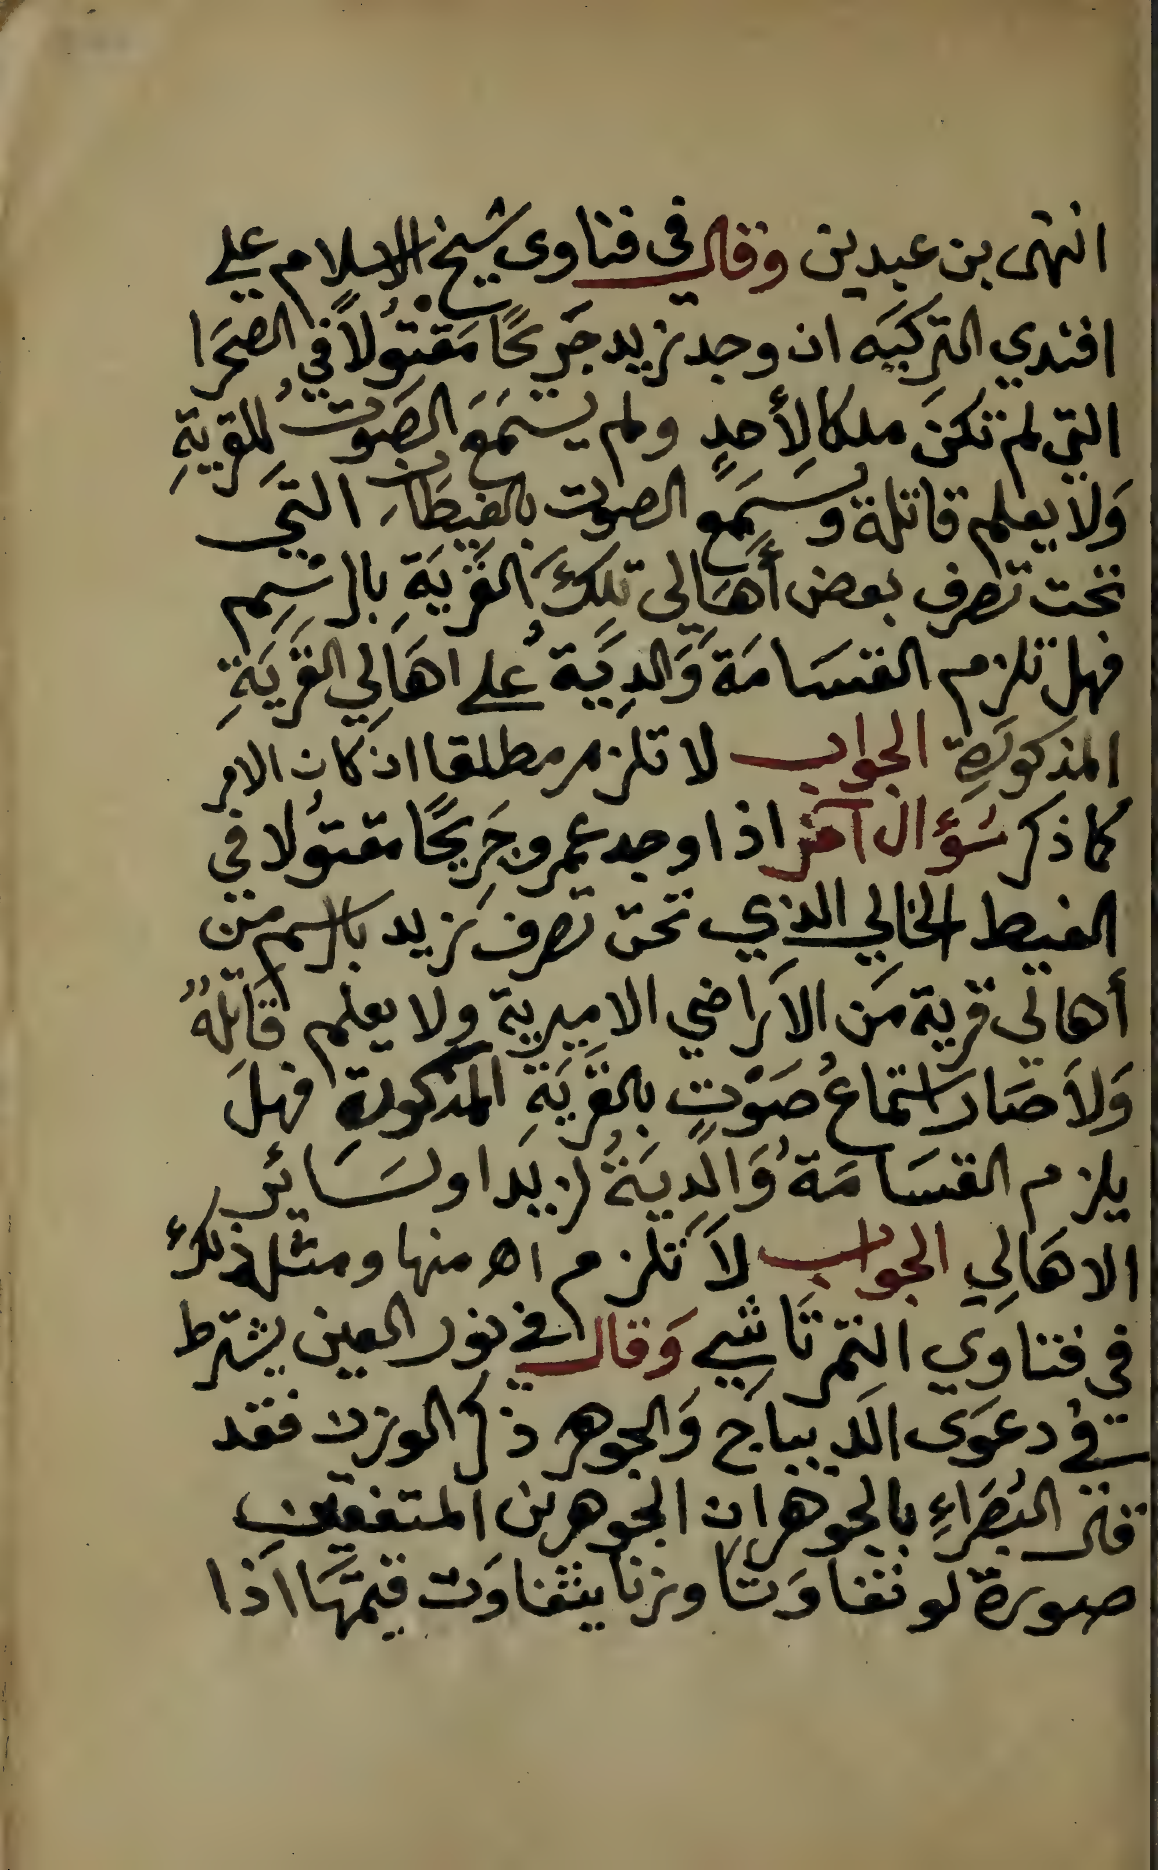 انتهى بن عبدين وقال في فتاوى شيخ الاسلام علي
افندي التركيَه ان وجد زيد جَريحًا مَقتُولاً في الصَحَرا
التي لم تكنَ ملكا لِأَحدٍ ولم يسْتمَع الصَوت للقريةِ
وَلا يعلم قاتلة ويسمَع الصوت بالغيطان التي
تحت تصرف بعض أَهَالي تلِكَ القَريَةِ بالرسِم
فهل تلزم القسَامَة وَالديَة عُلى اهَالِي القَريَةِ
المذكورَةِ الجواب لا تلزم مطلقا اذ كان الامر
كما ذكر سُؤال آخر اذا وجد عمرو جَرِيحًا مقتُولا في
الغيط الخالي الذي تحت تصرف زيد بالرسم من
أهالي قرية مَن الاَراضي الاميرية ولا يعلم قَاتلهُ
وَلاَ صَار استماعُ صَوْتٍ بالقَريَةِ المذكورة فهلَ
يلزم القسَامَة وَالديَةُ لزيد او لسَائر
الاهَالِي الجواب لاَ تَلزم اه منها ومثل ذلك
في فتاوي التمرتَاشِي وَقال في نور العين يشترط
في دعوَى الديباج وَالجوهر ذكر الوزن فقد
قال البُصَراءِ بالجوهر ان الجوهرين المتفقين
صورة لو تفاوَتا وزنا يتفاوَت قيمتهَا اذا